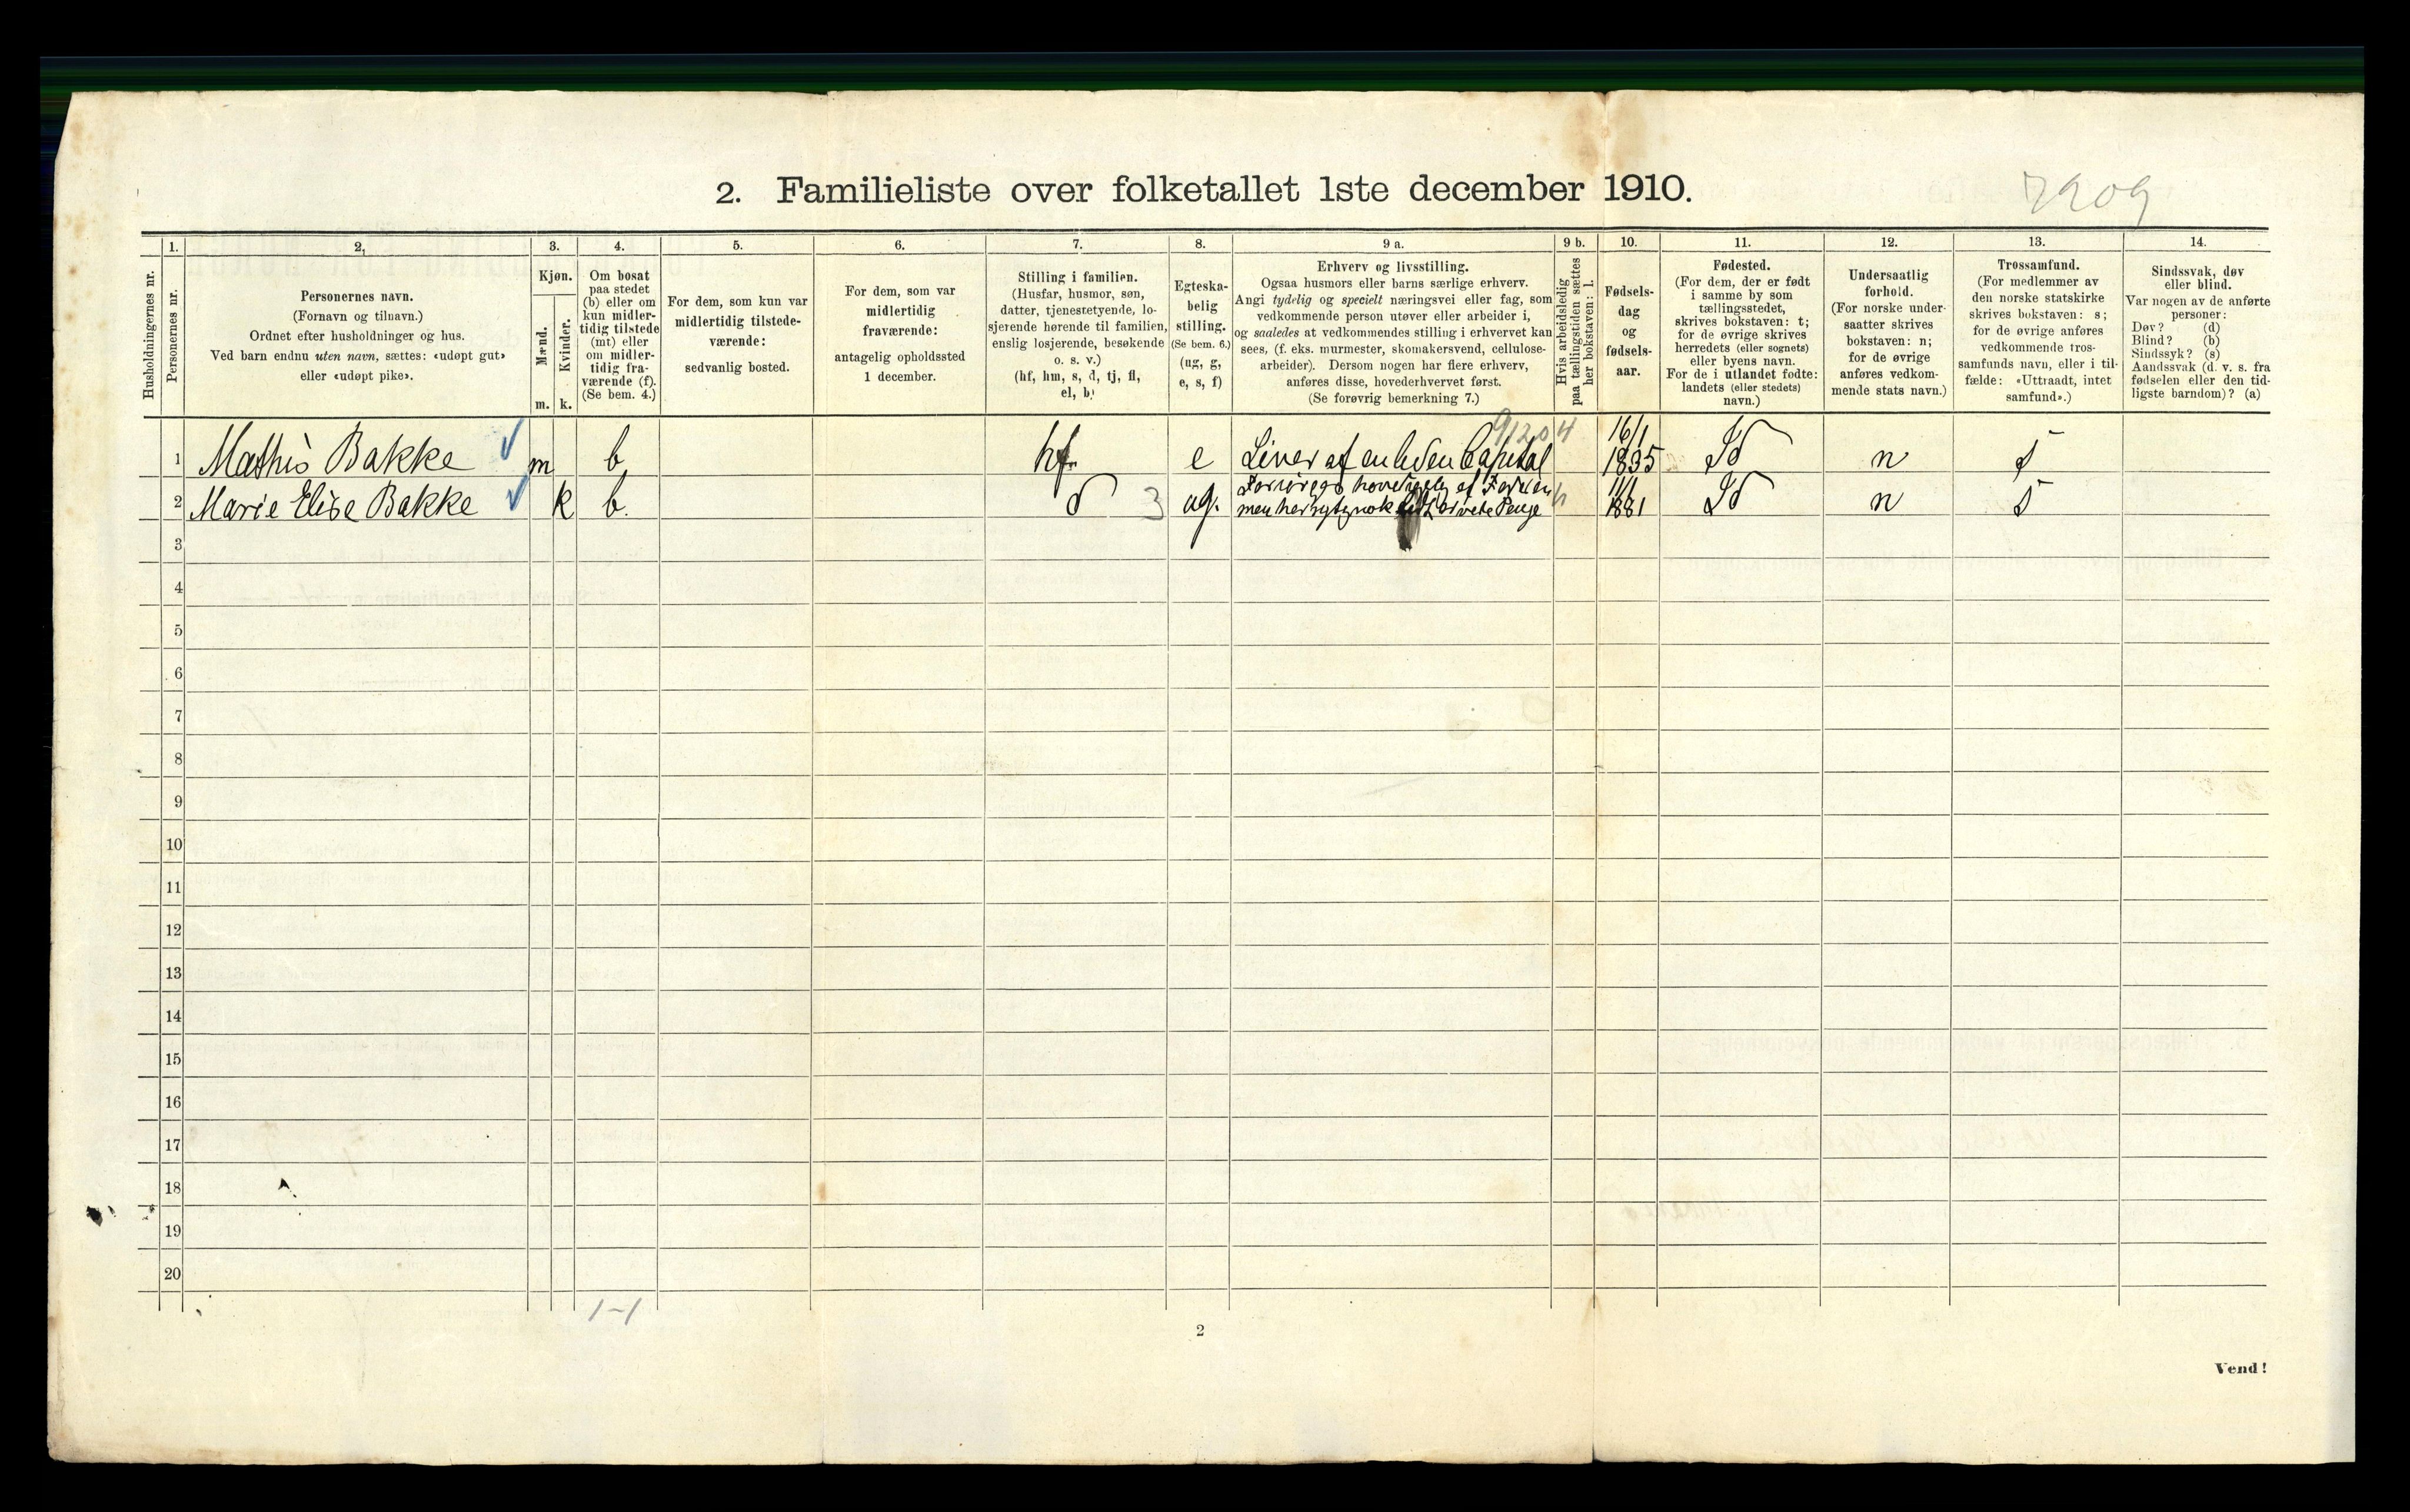 2. Familieliste over folketallet 1ste december 1910.
7909
1.
2.
3.
4.
5.
6.
7.
8.
9 a.
9 b.
10.
11.
12.
13.
14.
Husholdningernes nr.
Personernes nr.
Personernes navn.
(Fornavn og tilnavn.)
Ordnet efter husholdninger og hus.
Ved barn endnu uten navn, sættes: «udøpt gut»
eller «udøpt pike».
Kjøn.
Mænd.
Kvinder.
m.
k.
Om bosat
paa stedet
(b) eller om
kun midler-
tidig tilstede
(mt) eller
om midler-
tidig fra-
værende (f).
(Se bem. 4.)
For dem, som kun var
midlertidig tilstede-
værende:
sedvanlig bosted.
For dem, som var
midlertidig
fraværende:
antagelig opholdssted
1 december.
Stilling i familien.
(Husfar, husmor, søn,
datter, tjenestetyende, lo-
sjerende hørende til familien,
enslig losjerende, besøkende
o. s. v.)
(hf, hm, s, d, tj, fl,
el, b)
Egteska-
belig
stilling.
(Se bem. 6.)
(ug, g,
e, s, f)
Erhverv og livsstilling.
Ogsaa husmors eller barns særlige erhverv.
Angi tydelig og specielt næringsvei eller fag, som
vedkommende person utøver eller arbeider i,
og saaledes at vedkommendes stilling i erhvervet kan
sees, (f. eks. murmester, skomakersvend, cellulose-
arbeider). Dersom nogen har flere erhverv,
anføres disse, hovederhvervet først.
(Se forøvrig bemerkning 7.)
Hvis arbeidsledig
paa tællingstiden sættes
her bokstaven: l.
Fødsels-
dag
og
fødsels-
aar.
Fødested.
(For dem, der er født
i samme by som
tællingsstedet,
skrives bokstaven: t;
for de øvrige skrives
herredets (eller sognets)
eller byens navn.
For de i utlandet fødte:
landets (eller stedets)
navn.)
Undersaatlig
forhold.
(For norske under-
saatter skrives
bokstaven: n;
for de øvrige
anføres vedkom-
mende stats navn.)
Trossamfund.
(For medlemmer av
den norske statskirke
skrives bokstaven: s;
for de øvrige anføres
vedkommende tros-
samfunds navn, eller i til-
fælde: «Uttraadt, intet
samfund».)
Sindssvak, døv
eller blind.
Var nogen av de anførte
personer:
Døv? (d)
Blind? (b)
Sindssyk? (s)
Aandssvak (d. v. s. fra
fødselen eller den tid-
ligste barndom)? (a)
1 Mathis Bakke m b hf e Lever af en liden Capital 16/1 1835 n s
2 Marie Elise Bakke k b. d 3 ug. 11/1 1881 n s
3
4
5
6
7
8
9
10
11
12
13
14
15
16
17
18
19
20
1-1
2
Vend!